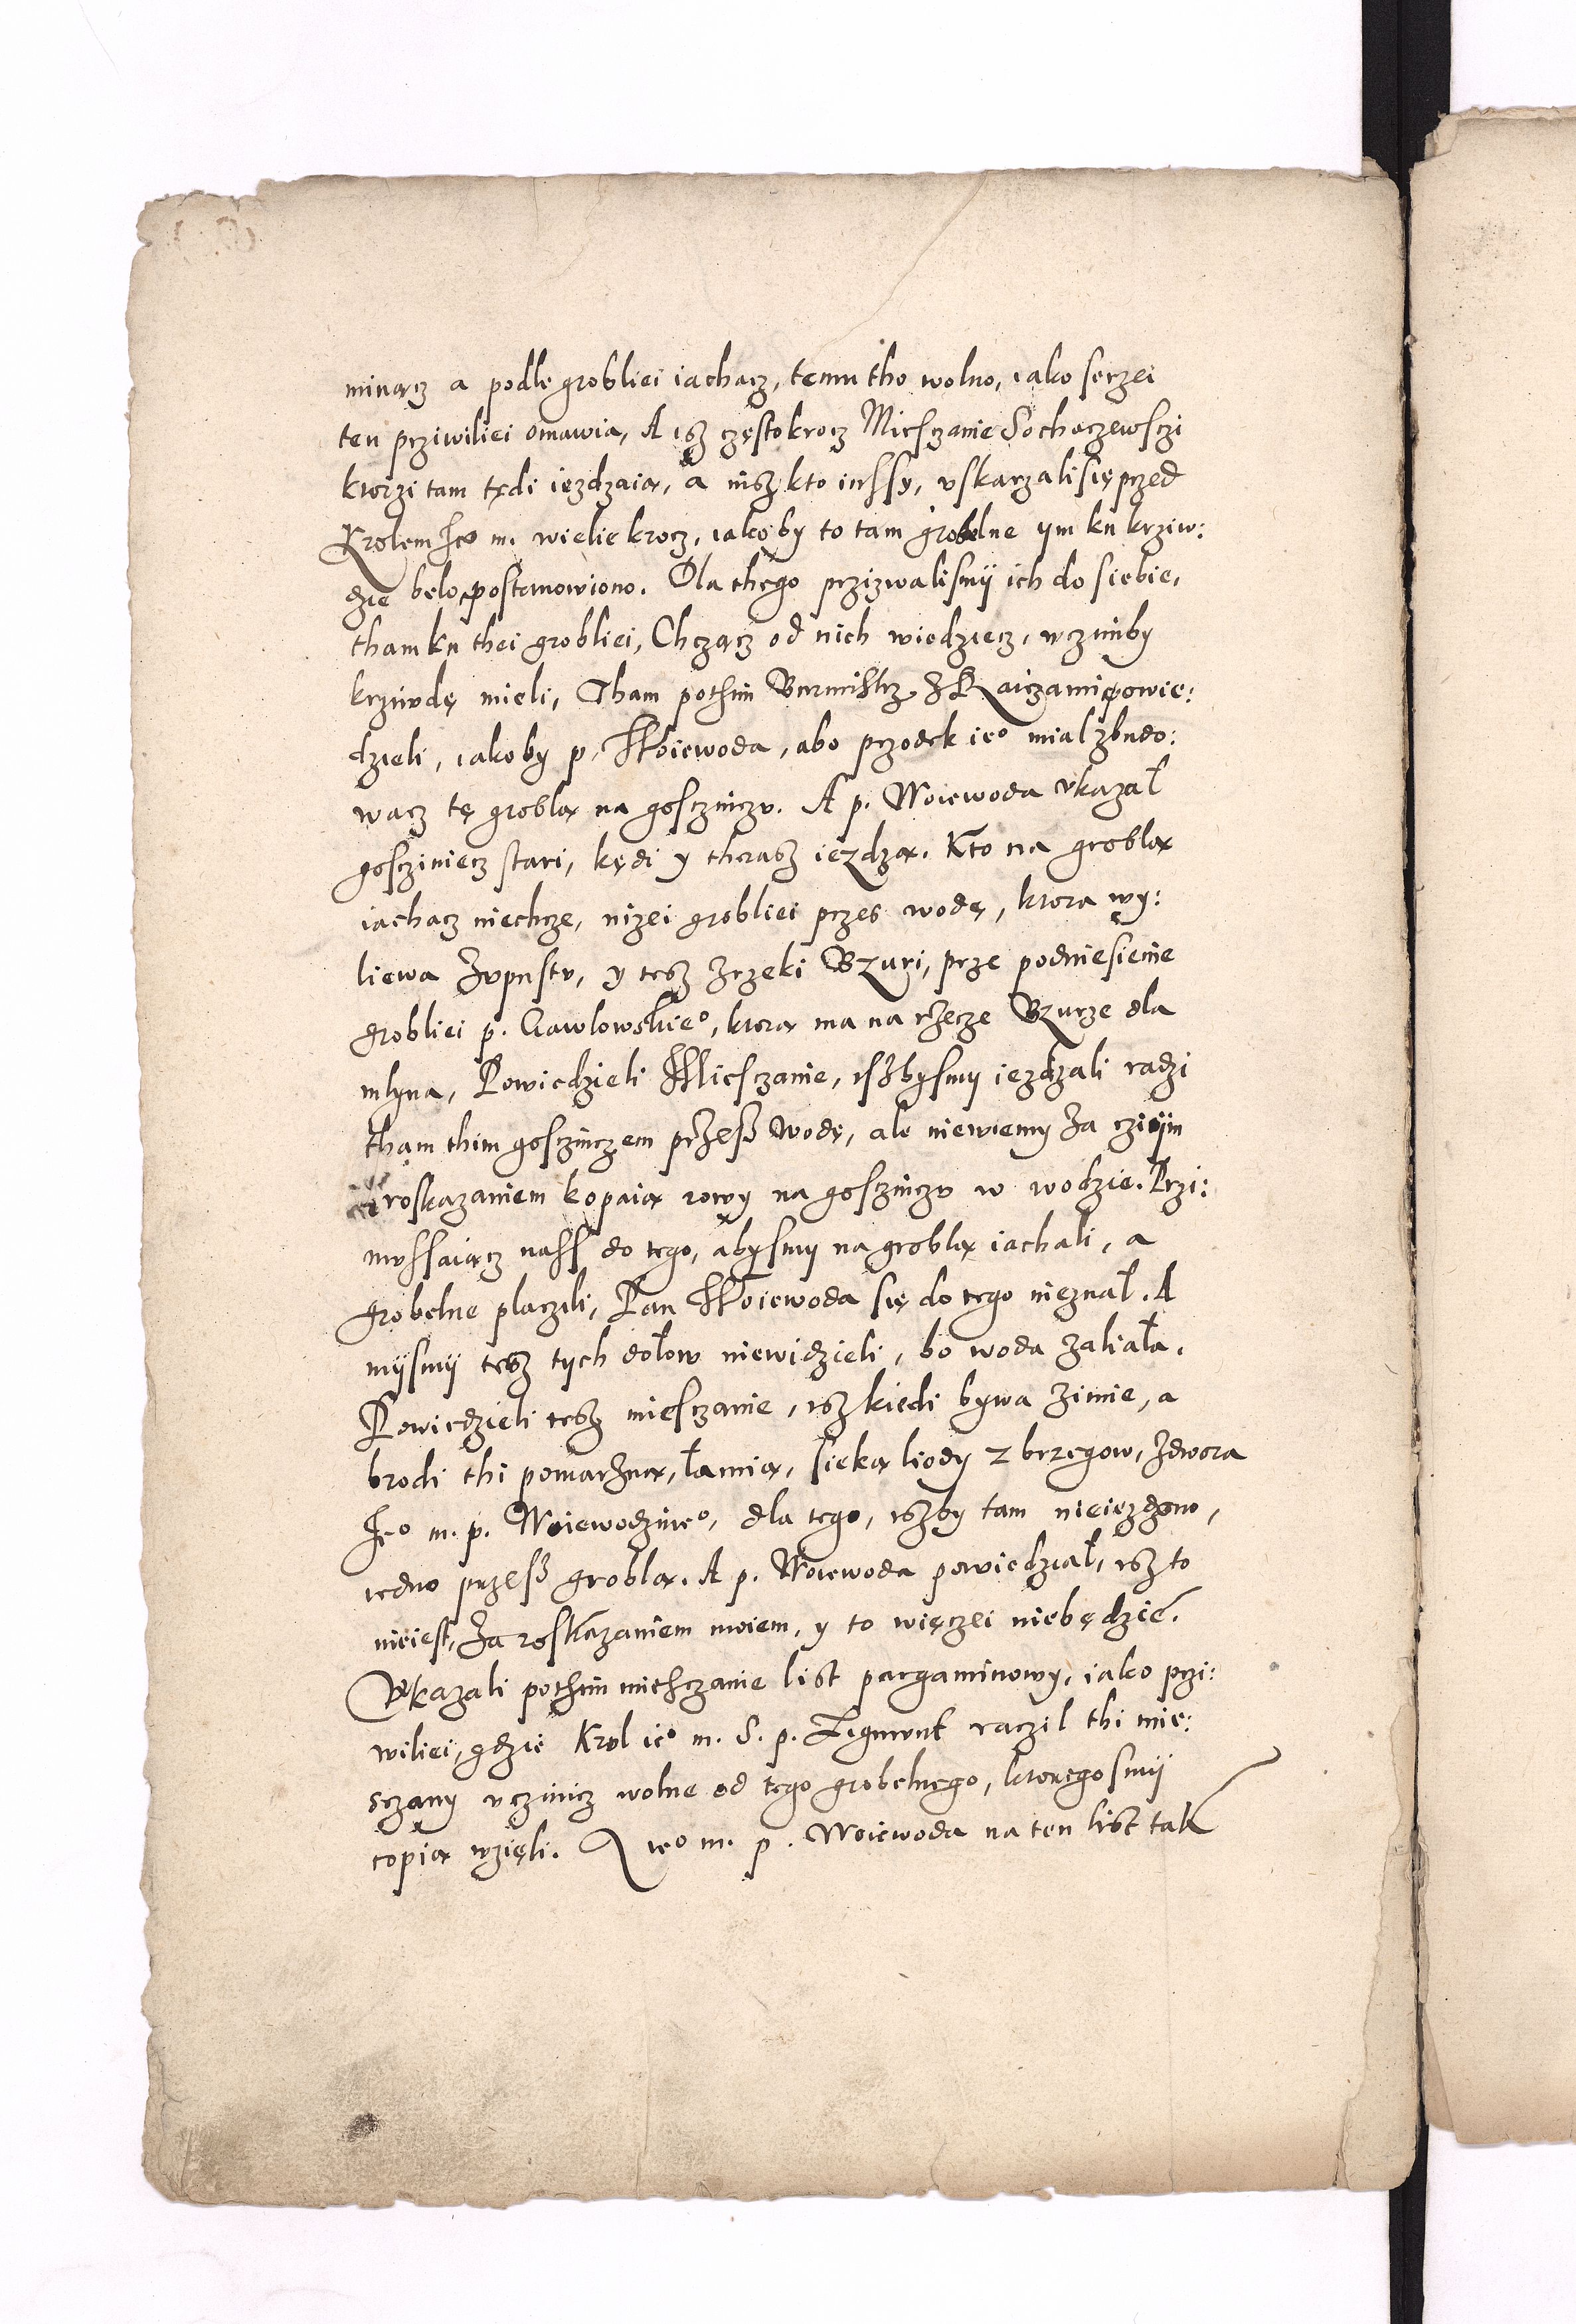 minącz a podle grobliei iachacz, temu tho wolno, iako serzei
ten prziwiliei omawia, A isz częstokrocz Miesczanie Sochaczewsczi
ktorzi tam tędi iezdzaią, a nisz kto inssy, uskarzali się przed
Krolem Ieo m. wieliekrocz, iakoby to tam grobelne ym ku krziw:
dzie belo postanowiono. Dla thego przizwalismÿ ich do siebie,
tham ku thei grobliei, Chcząc od nich wiedziecz, w czimby
krziwdę mieli, Tham pothim Burmistrz Z Raiczami powie:
dzieli, iakoby p. Woiewoda, abo przodek ieo mial zbudo:
wacz tę groblą na gosczinczu. A p. Woiewoda ukazał
gosciniecz stari, kędi y therasz iezdzą. Kto na groblą
iachacz niechcze, nizei grobliei przes wodę, ktora wy:
liewa Zupustu, y tesz Zrzeki Bzuri, prze podniesienie
grobliei p. Gawlowskieo, ktorą ma na rzecze Bzurze dla
mlyna, Powiedzieli Miesczanie, iszbysmy iezdzali radzi
tham thim gosczinczem przesz wodę, ale niewiemy Za cziijm
roskazaniem kopaią rowy na gosczinczu w wodzie. Przi:
mussaiącz nass do tego, abysmy na groblą iachali, a
grobelne placzili, Pan Woiewoda się do tego nieznał. A
mÿsmÿ tesz tych dołow niewidzieli, bo woda zaliała.
Powiedzieli tesz miesczanie, isz kiedi bywa Zimie, a
brodi thi pomarzną, łamią, sieką liody z brzegow, Zdwora
Ieo m. p. Woiewodzineo, dla tego, iszby tam nieiezdzono,
iedno przesz groblą. A p. Woiewoda powiedział, isz to
nieiest, Za roskazaniem moiem, y to więczei niebędzie.
Ukazali pothim miesczanie list pargaminowy, iako przi:
wiliei, gdzie Krol ieo m. S. p. Zigmunt raczil thi mie:
sczany uczinicz wolne od tego grobelnego, ktoregosmÿ
copią wzięli. A ieo m. p. Woiewoda na ten list tak